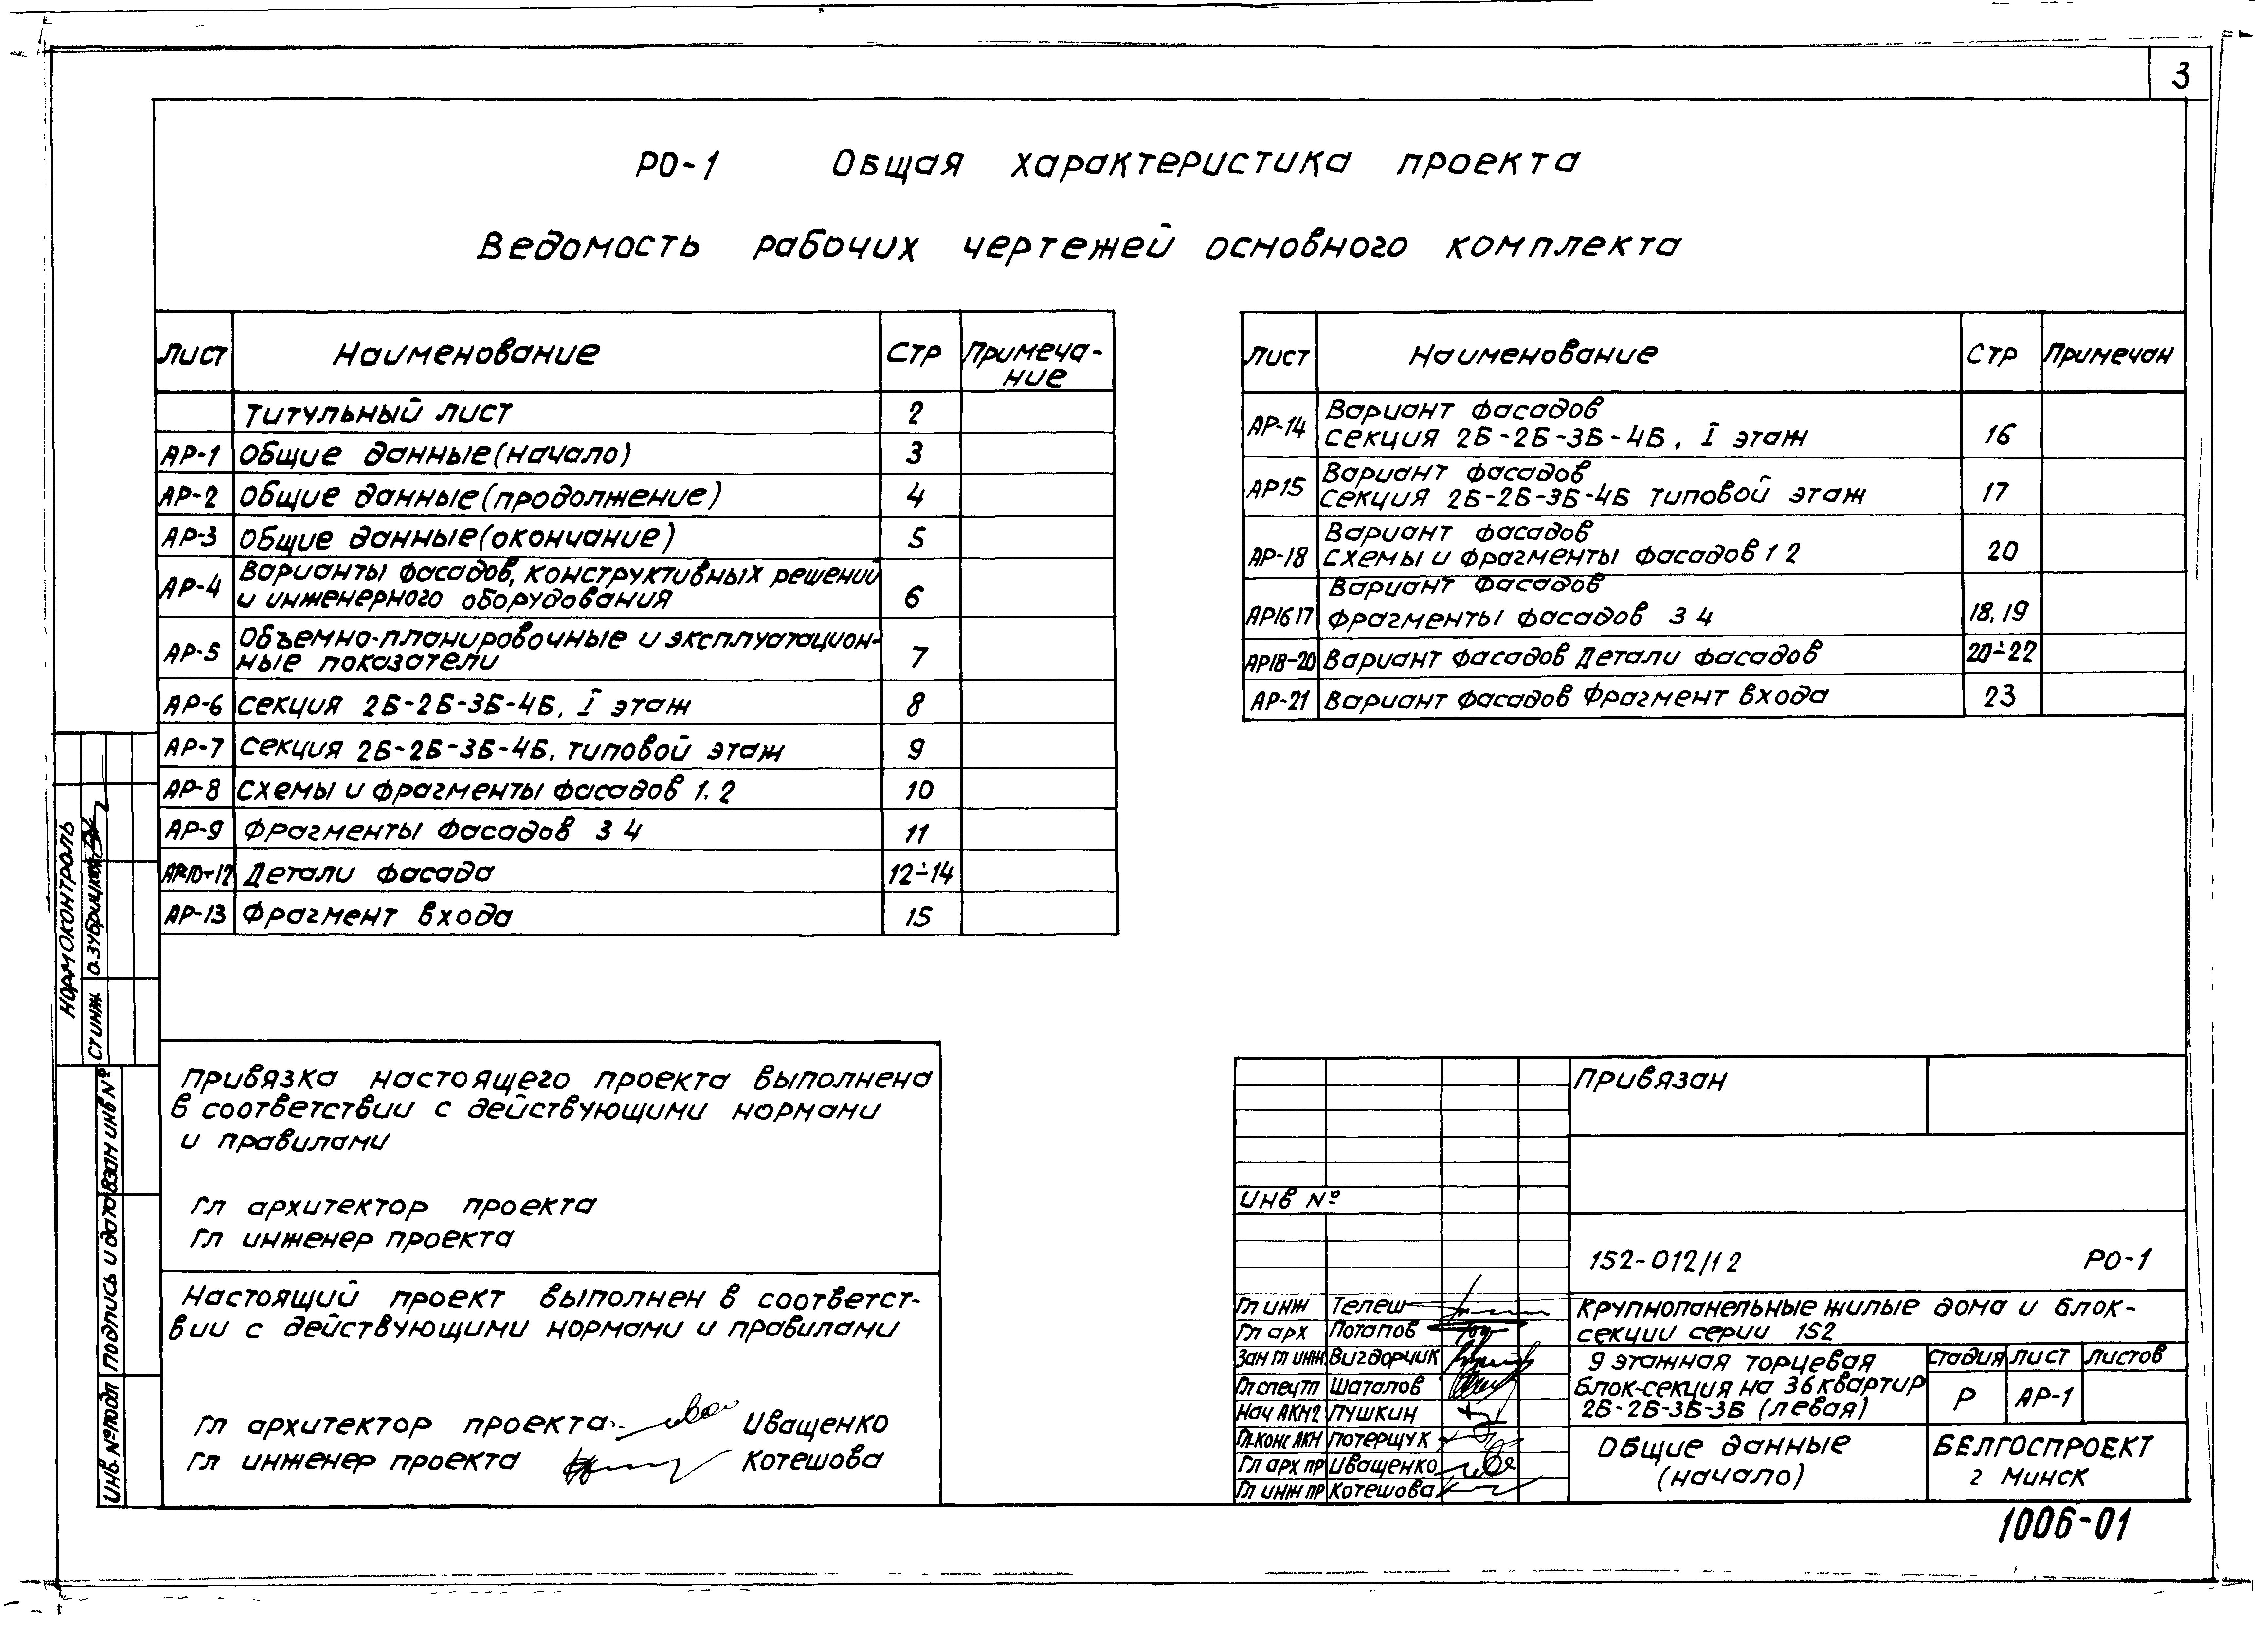 3
РО-1 Общая характеристика проекта
Ведомость рабочих чертежей основного комплекта
Лист Наименование Стр Примеча-
ние
Титульный лист 2
АР-1 Общие данные (начало) 3
АР-2 Общие данные (продолжение) 4
АР-3 Общие данные (окончание) 5
Варианты фасадов, конструктивных решений
АР-4 и инженерного оборудования 6
Объемно-планировочные и эксплуатацион-
АР-5 ные показатели 7
АР-6 Секция 2Б-2Б-3Б-4Б, I этаж 8
АР-7 Секция 2Б-2Б-3Б-4Б, типовой этаж 9
АР-8 Схемы и фрагменты фасадов 1.2 10
АР-9 Фрагменты фасадов 3 4 11
АР10÷12 Детали фасада 12÷14
АР-13 Фрагмент входа 15
Лист Наименование Стр Примечан
Вариант фасадов
АР-14 секция 2Б-2Б-3Б-4Б, I этаж 16
Вариант фасадов
АР15 секция 2Б-2Б-3Б-4Б типовой этаж 17
Вариант фасадов
АР-18 Схемы и фрагменты фасадов 1 2 20
Вариант фасадов
АР16 17 Фрагменты фасадов 3 4 18, 19
АР18-20 Вариант фасадов Детали фасадов 20÷22
АР-21 Вариант фасадов Фрагмент входа 23
Нормоконтроль
Ст инж. Озубрицкая
Взам инв №
Подпись и дата
Инв. № подл
Привязка настоящего проекта выполнена
в соответствии с действующими нормами
и правилами
Гл архитектор проекта
Гл инженер проекта
Настоящий проект выполнен в соответст-
вии с действующими нормами и правилами
Гл архитектор проекта Иващенко
Гл инженер проекта Котешова
Привязан
Инв №
152-012/1 2 РО-1
Гл инж Телеш
Гл арх Потапов
Зам гл инж Вигдорчик
Гл спец тп Шаталов
Нач АКМ2 Пушкин
Гл.конс АКМ Потерщук
Гл арх пр Иващенко
Гл инж пр Котешова
Крупнопанельные жилые дома и блок-
секции серии 152
9 этажная торцевая
блок-секция на 36 квартир
2Б-2Б-3Б-3Б (левая)
Стадия Лист Листов
Р АР-1
Общие данные
(начало)
БЕЛГОСПРОЕКТ
г Минск
1006-01